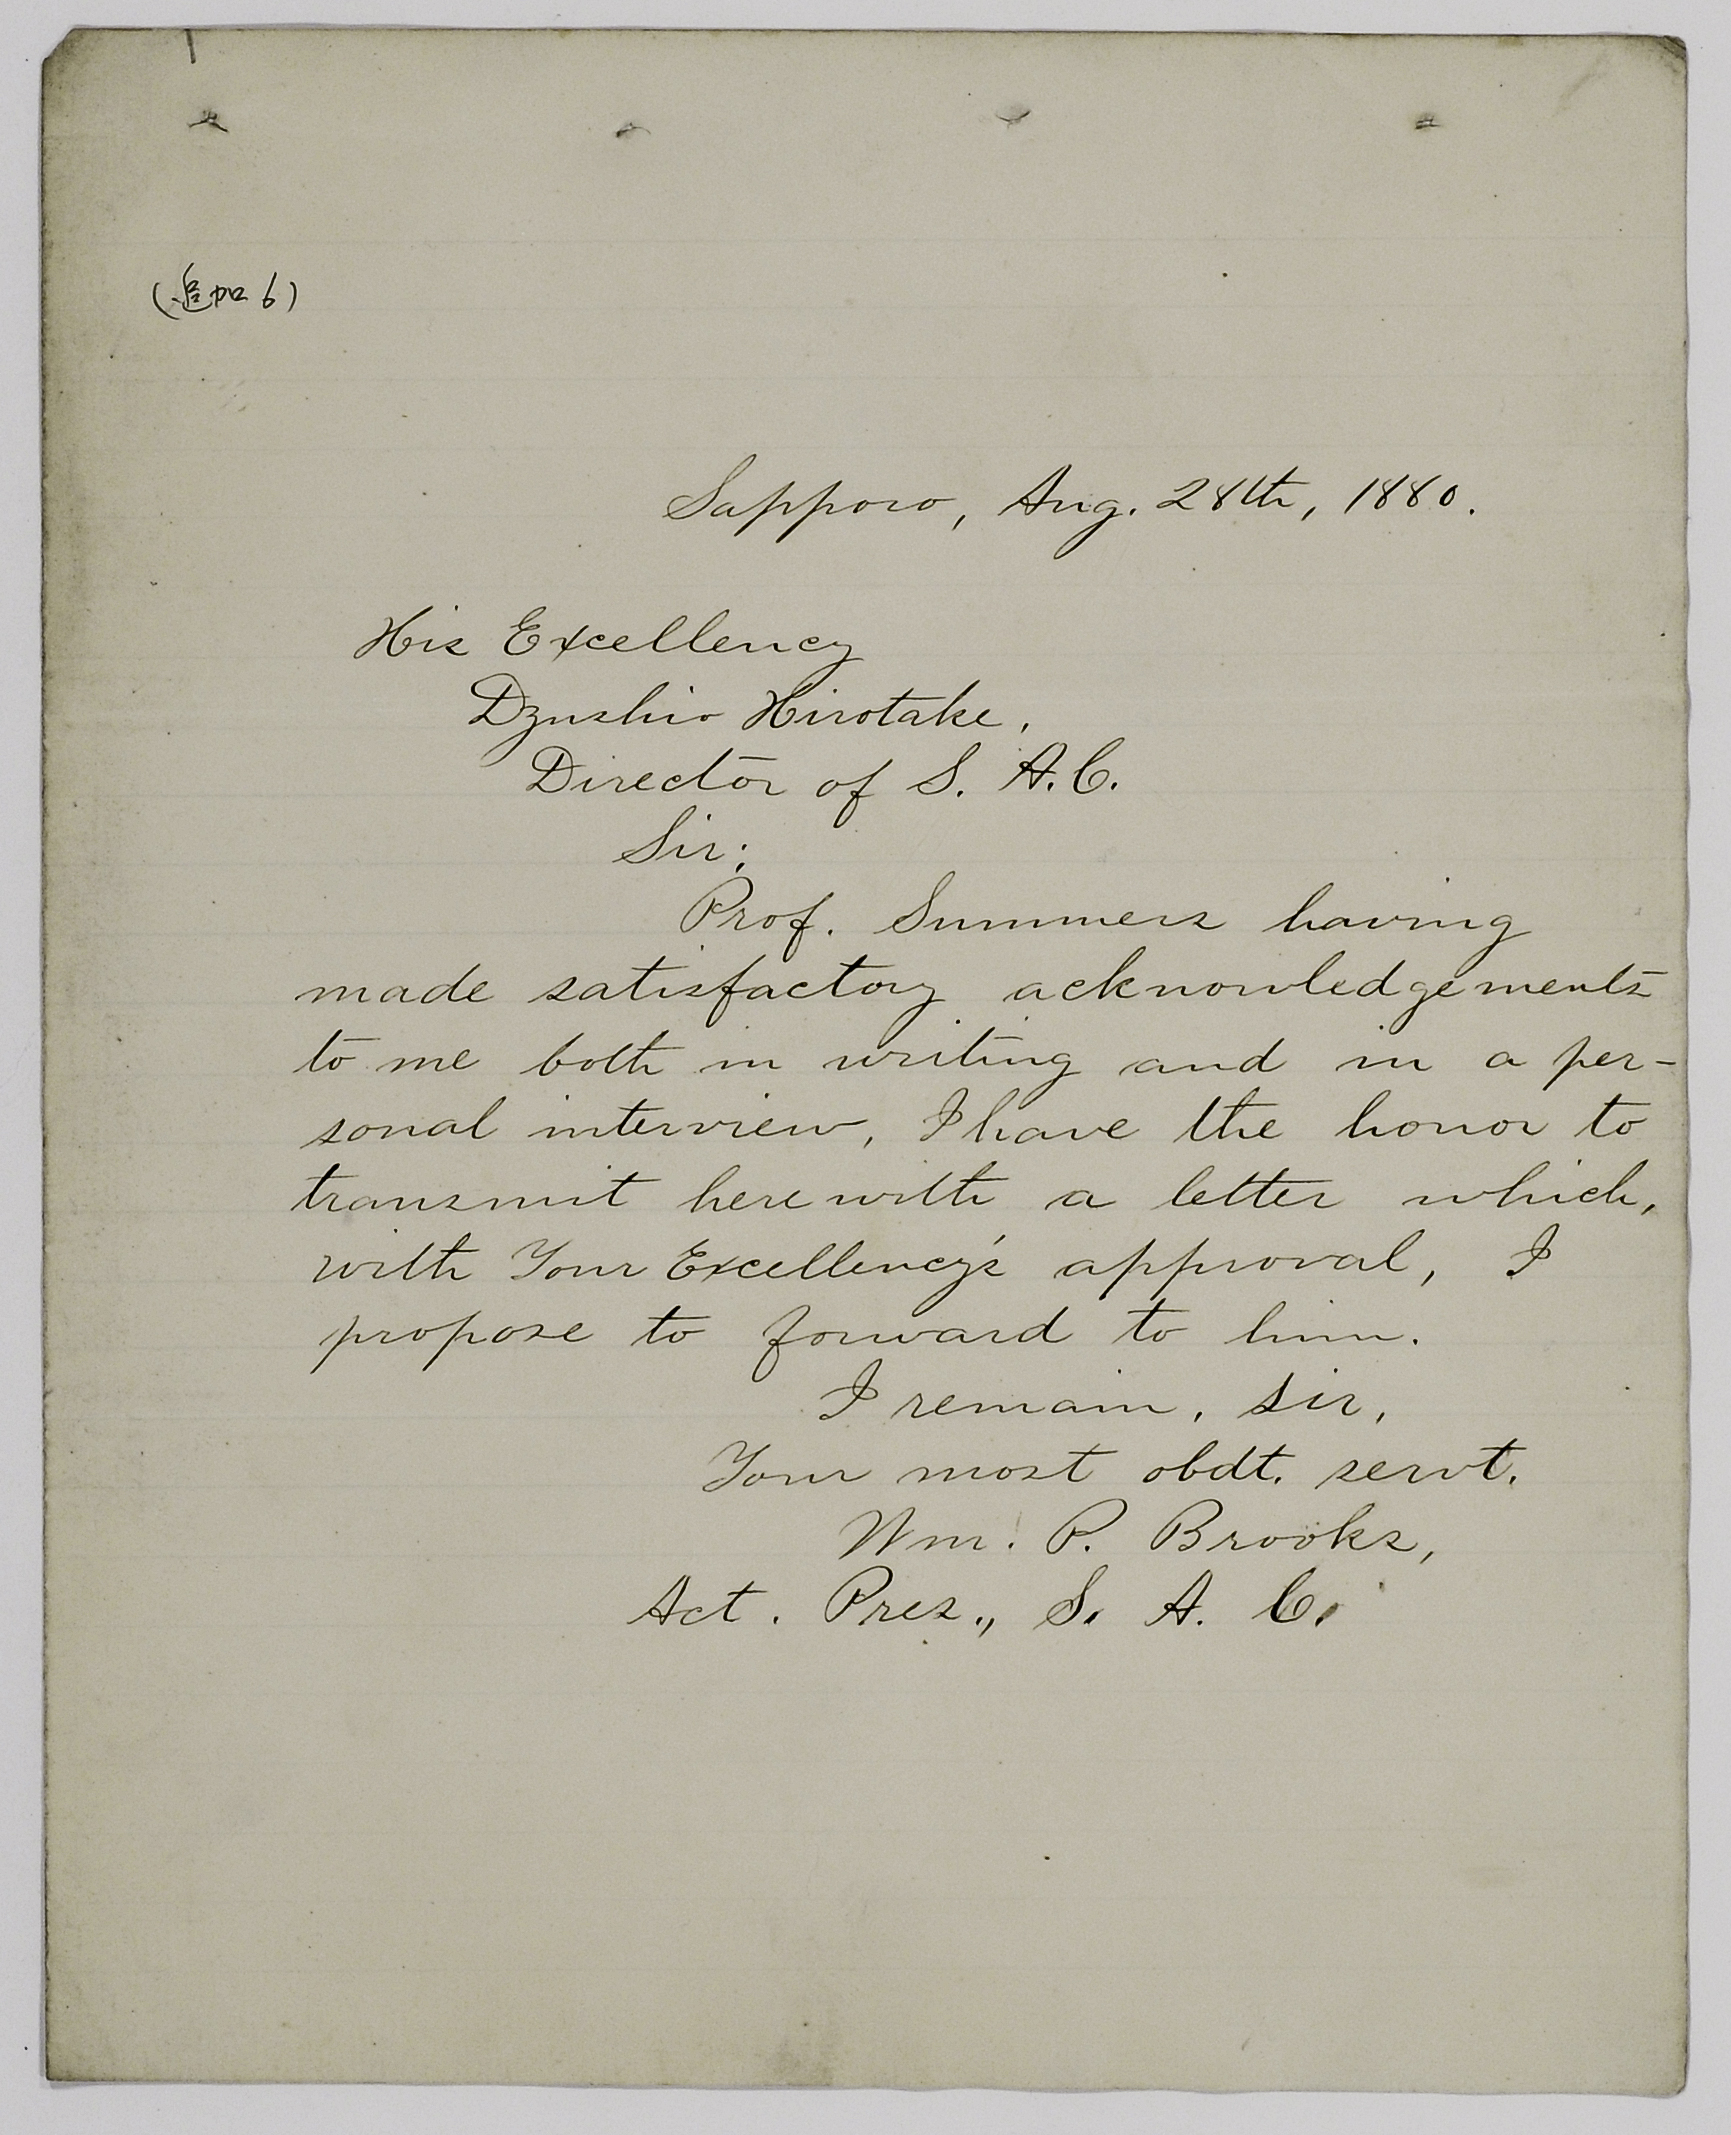 (追加6)
Sapporo, Aug. 28th, 1880.
His Excellency
Dzushio Hirotake,
Director of S. A. C.
Sir;
Prof. Summers having
made satisfactory acknowledgements
to me both in writing and in a per-
sonal interview, I have the honor to
transmit herewith a letter which,
with Your Excellency's approval, I
propose to forward to him.
I remain, Sir,
Your most obdt. servt.
Wm. P. Brooks,
Act. Pres., S. A. C.